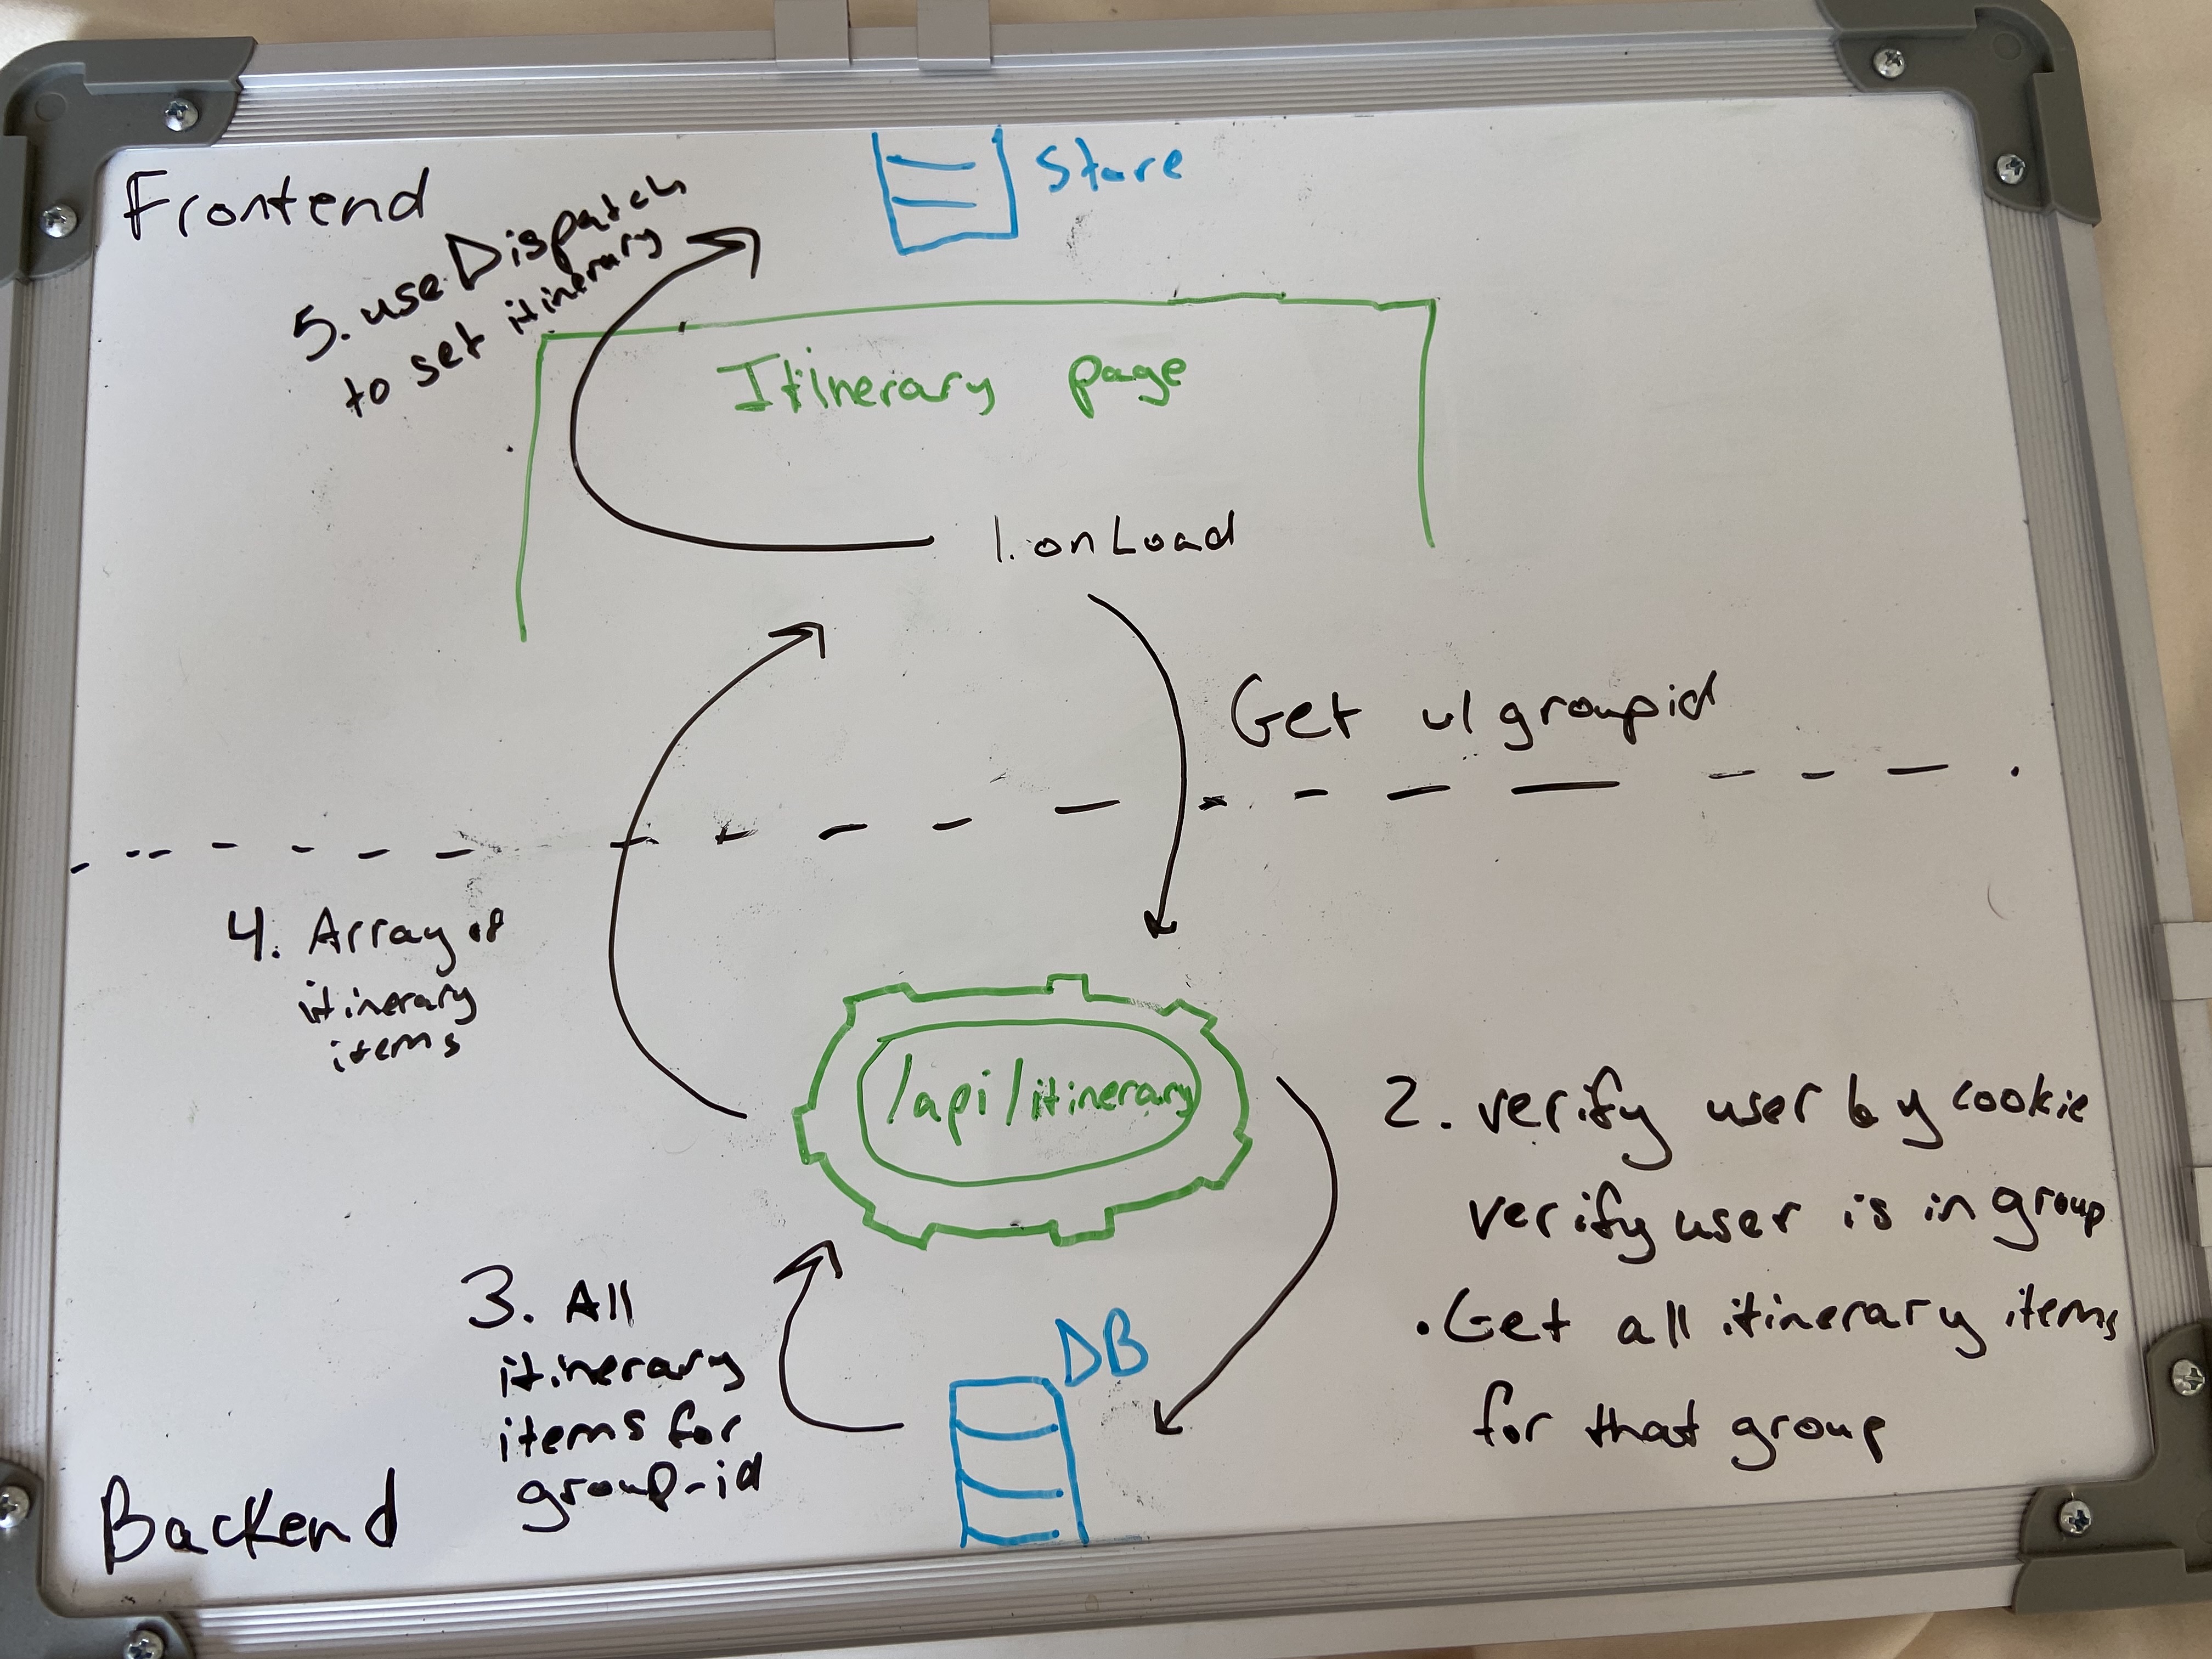 Frontend
Store
5. useDispatch
to set itinerary
Itinerary page
1. onLoad
Get w/ groupid
4. Array of
itinerary
items
/api/itinerary
2. verify user by cookie
verify user is in group
. Get all itinerary items
for that group
3. All
itinerary
items for
group-id
DB
Backend